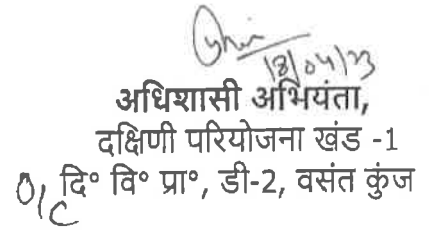 18/04/23
अधिशासी अभियंता,
दक्षिणी परियोजना खंड -1
O/C दि° वि° प्रा°, डी-2, वसंत कुंज